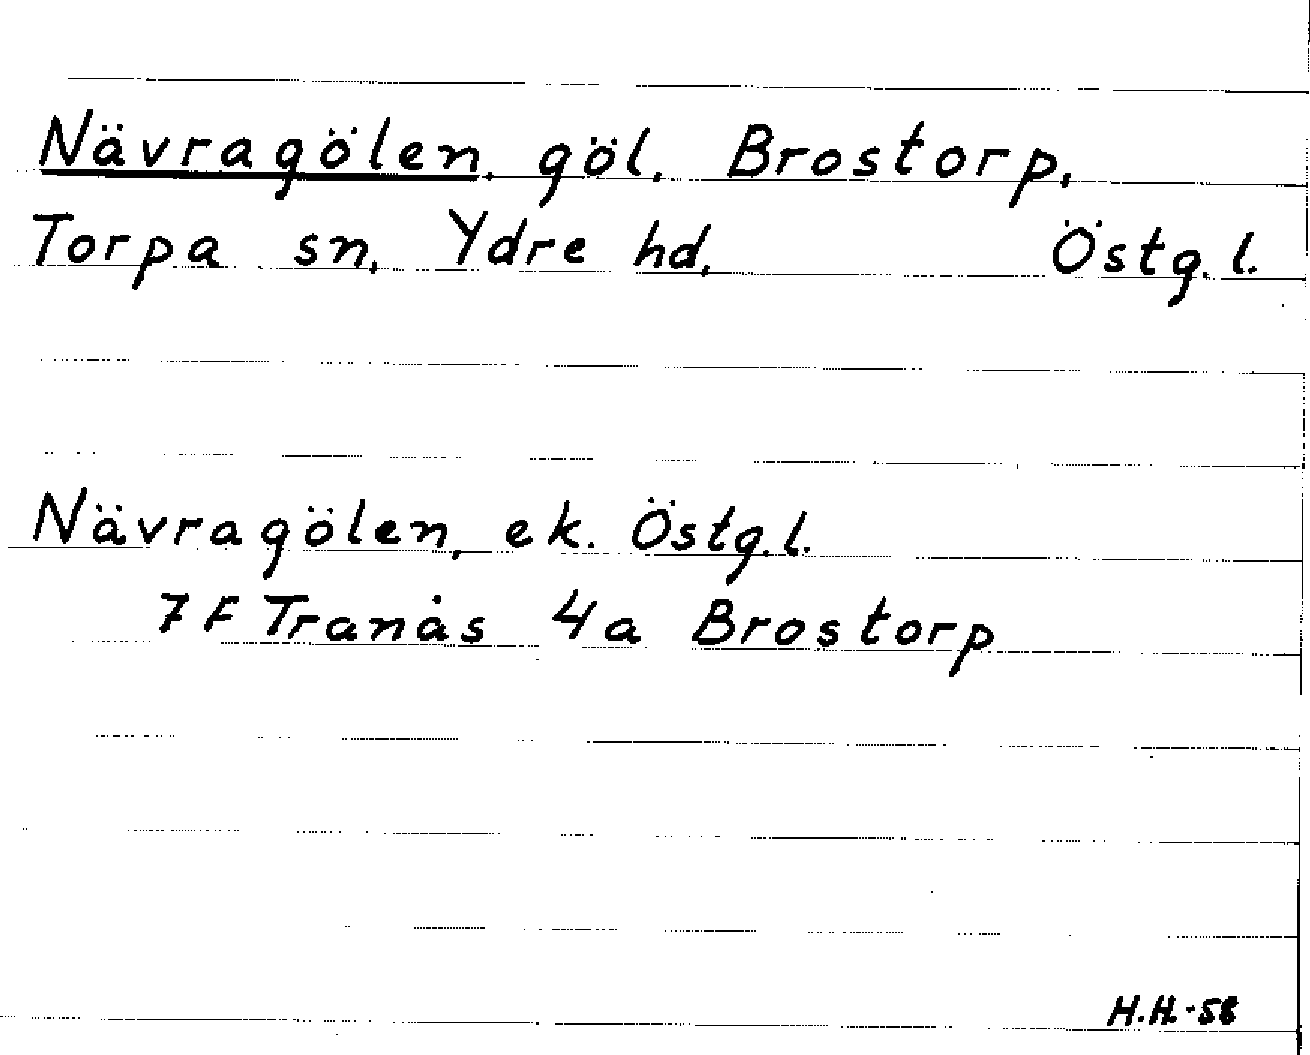 Nävragölen, göl, Brostorp,
Torpa sn, Ydre hd, Östg. l.
Nävragölen, ek. Östg. l.
7 F Tranås 4a Brostorp
H.H.-58